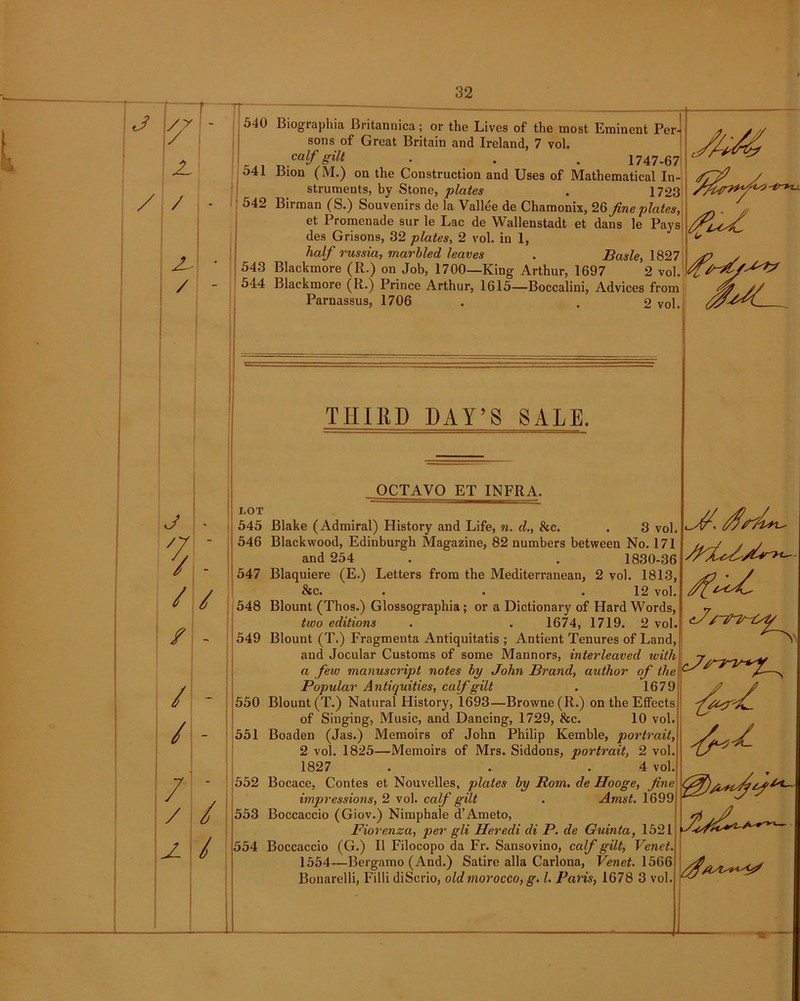 32
540 Biographia Britannica; or the Lives of the most Eminent Per-
sons of Great Britain and Ireland, 7 vol.
calf gilt . . . 1747-67
541 Bion (M.) on the Construction and Uses of Mathematical In-
struments, by Stone, plates . 1723
542 Birman (S.) Souvenirs de la Vallée de Chamonix, 26 fine plates,
et Promenade sur le Lac de Wallenstadt et dans le Pays
des Grisons, 32 plates, 2 vol. in 1,
half russia, marbled leaves . Basle, 1827
543 Blackmore (R.) on Job, 1700—King Arthur, 1697 2 vol.
544 Blackmore (R.) Prince Arthur, 1615—Boccalini, Advices from
Parnassus, 1706 . . 2 vol.
THIRD DAY'S SALE.
OCTAVO ET INFRA.
LOT
545 Blake (Admiral) History and Life, n. d., &c. . 3 vol.
546 Blackwood, Edinburgh Magazine, 82 numbers between No. 171
and 254 . . 1830-36
547 Blaquiere (E.) Letters from the Mediterranean, 2 vol. 1813,
&c. . . . 12 vol.
548 Blount (Thos.) Glossographia; or a Dictionary of Hard Words,
two editions . . 1674, 1719. 2 vol.
549 Blount (T.) Fragmenta Antiquitatis; Antient Tenures of Land,
and Jocular Customs of some Mannors, interleaved with
a few manuscript notes by John Brand, author of the
Popular Antiquities, calf gilt . 1679
550 Blount (T.) Natural History, 1693—Browne (R.) on the Effects
of Singing, Music, and Dancing, 1729, &c. 10 vol.
551 Boaden (Jas.) Memoirs of John Philip Kemble, portrait,
2 vol. 1825—Memoirs of Mrs. Siddons, portrait, 2 vol.
1827 . . . 4 vol.
552 Bocace, Contes et Nouvelles, plates by Rom. de Hooge, fine
impressions, 2 vol. calf gilt . Amst. 1699
553 Boccaccio (Giov.) Nimphale d'Ameto,
Fiorenza, per gli Heredi di P. de Guinta, 1521
554 Boccaccio (G.) Il Filocopo da Fr. Sansovino, calf gilt, Venet.
1554—Bergamo (And.) Satire alla Carlona, Venet. 1566
Bonarelli, Filli di Scrio, old morocco, g. l. Paris, 1678 3 vol.